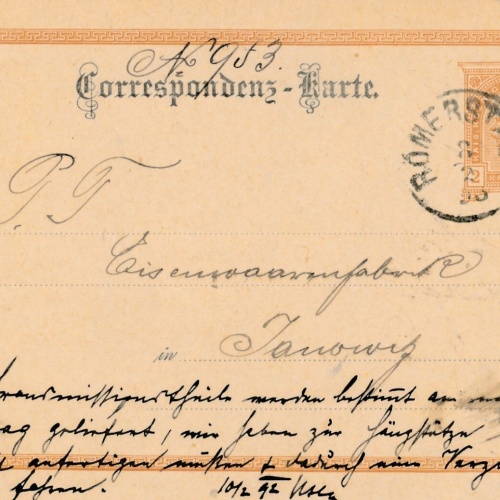 No 953.
Correspondenz-Karte.
RÖMERST
2
P. T.
Eisenwaarenfabrik
in Janowitz
Transmissionstheile werden bestimmt am
geliefert, wir haben zur Hängstütze
anfertigen müssen & dadurch eine Verz
fahren. 10/2 92